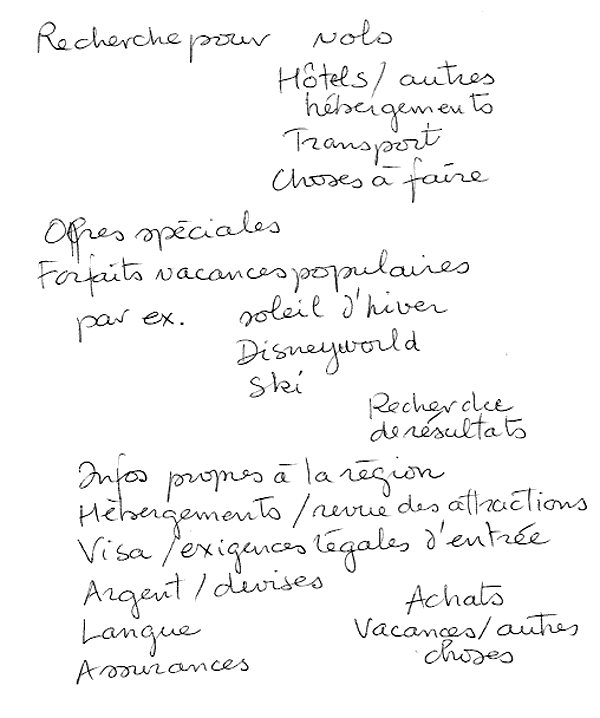 Recherche pour vols
Hôtels / autres
hébergements
Transport
Choses à faire
Offres spéciales
Forfaits vacances populaires
par ex. soleil d'hiver
Disneyworld
Ski
Recherche
de résultats
Infos propres à la région
Hébergements / revue des attractions
Visa / exigences légales d'entrée
Argent / devises
Achats
Langue
Vacances / autres
choses
Assurances